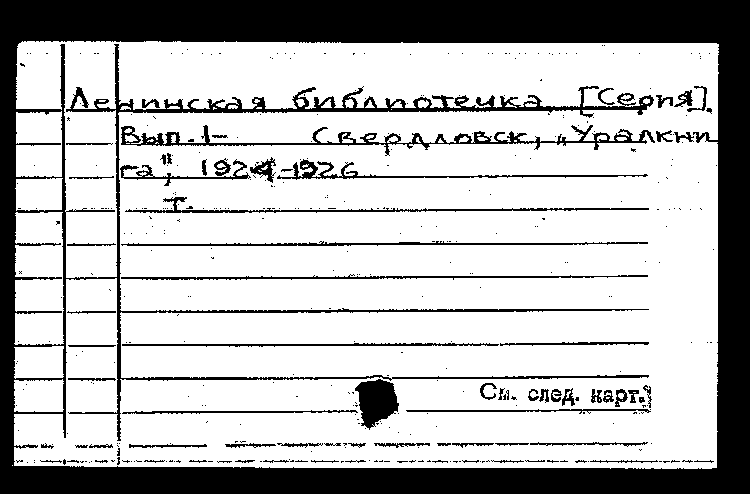 Ленинская библиотечка [Серия].
Вып. 1- Свердловск, „Уралкни
га", 1924-1926
т.
См. след. карт.